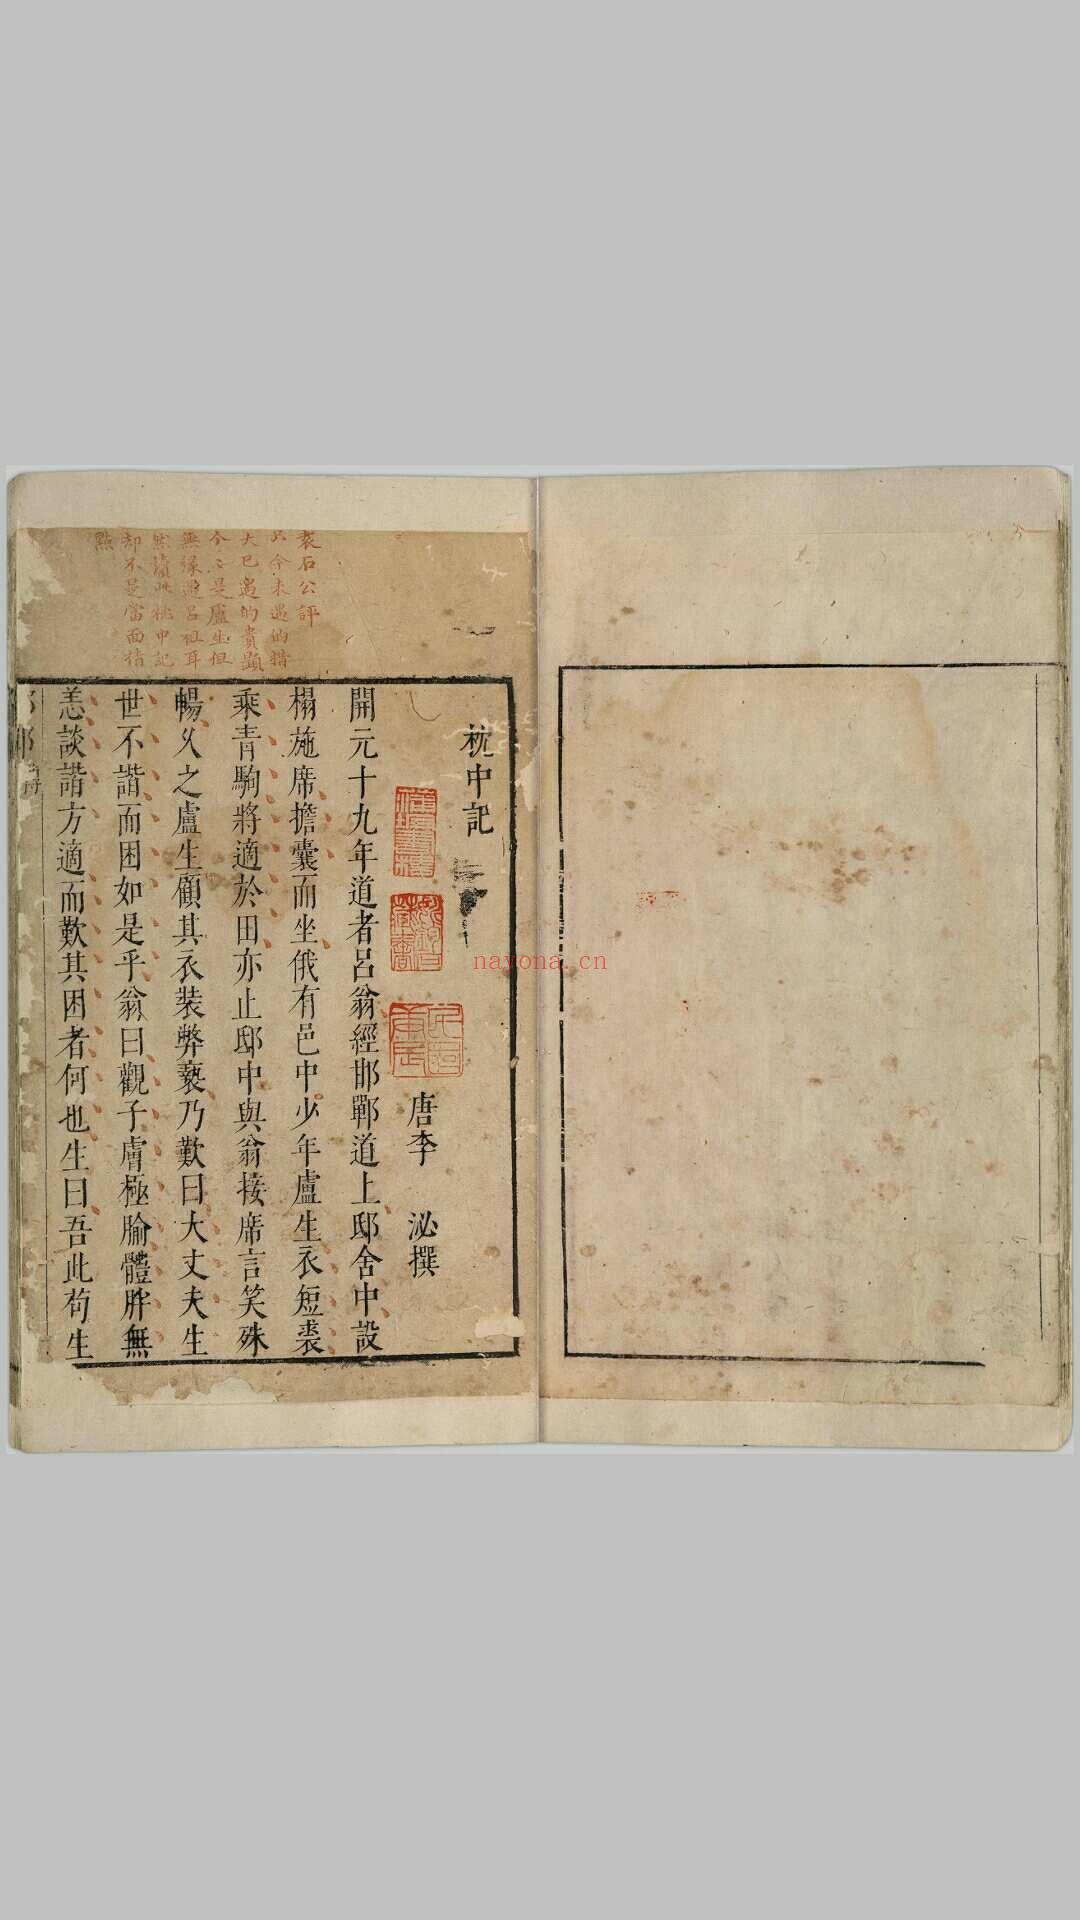 枕中記
唐李 泌撰
開元十九年道者呂翁經邯鄲道上邸舍中設
榻施席擔囊而坐俄有邑中少年盧生衣短裘
乘青駒將適於田亦止邸中與翁接席言笑殊
暢久之盧生顧其衣裝弊䙝乃歎曰大丈夫生
世不諧而困如是乎翁曰觀子膚極腧體胖無
恙談諧方適而歎其困者何也生曰吾此苟生
袁石公評
今未遇的措
大已過的貴顯
个〻是盧生但
無緣遇呂祖耳
然讀此枕中記
却不是當面猜
點
nayona.cn